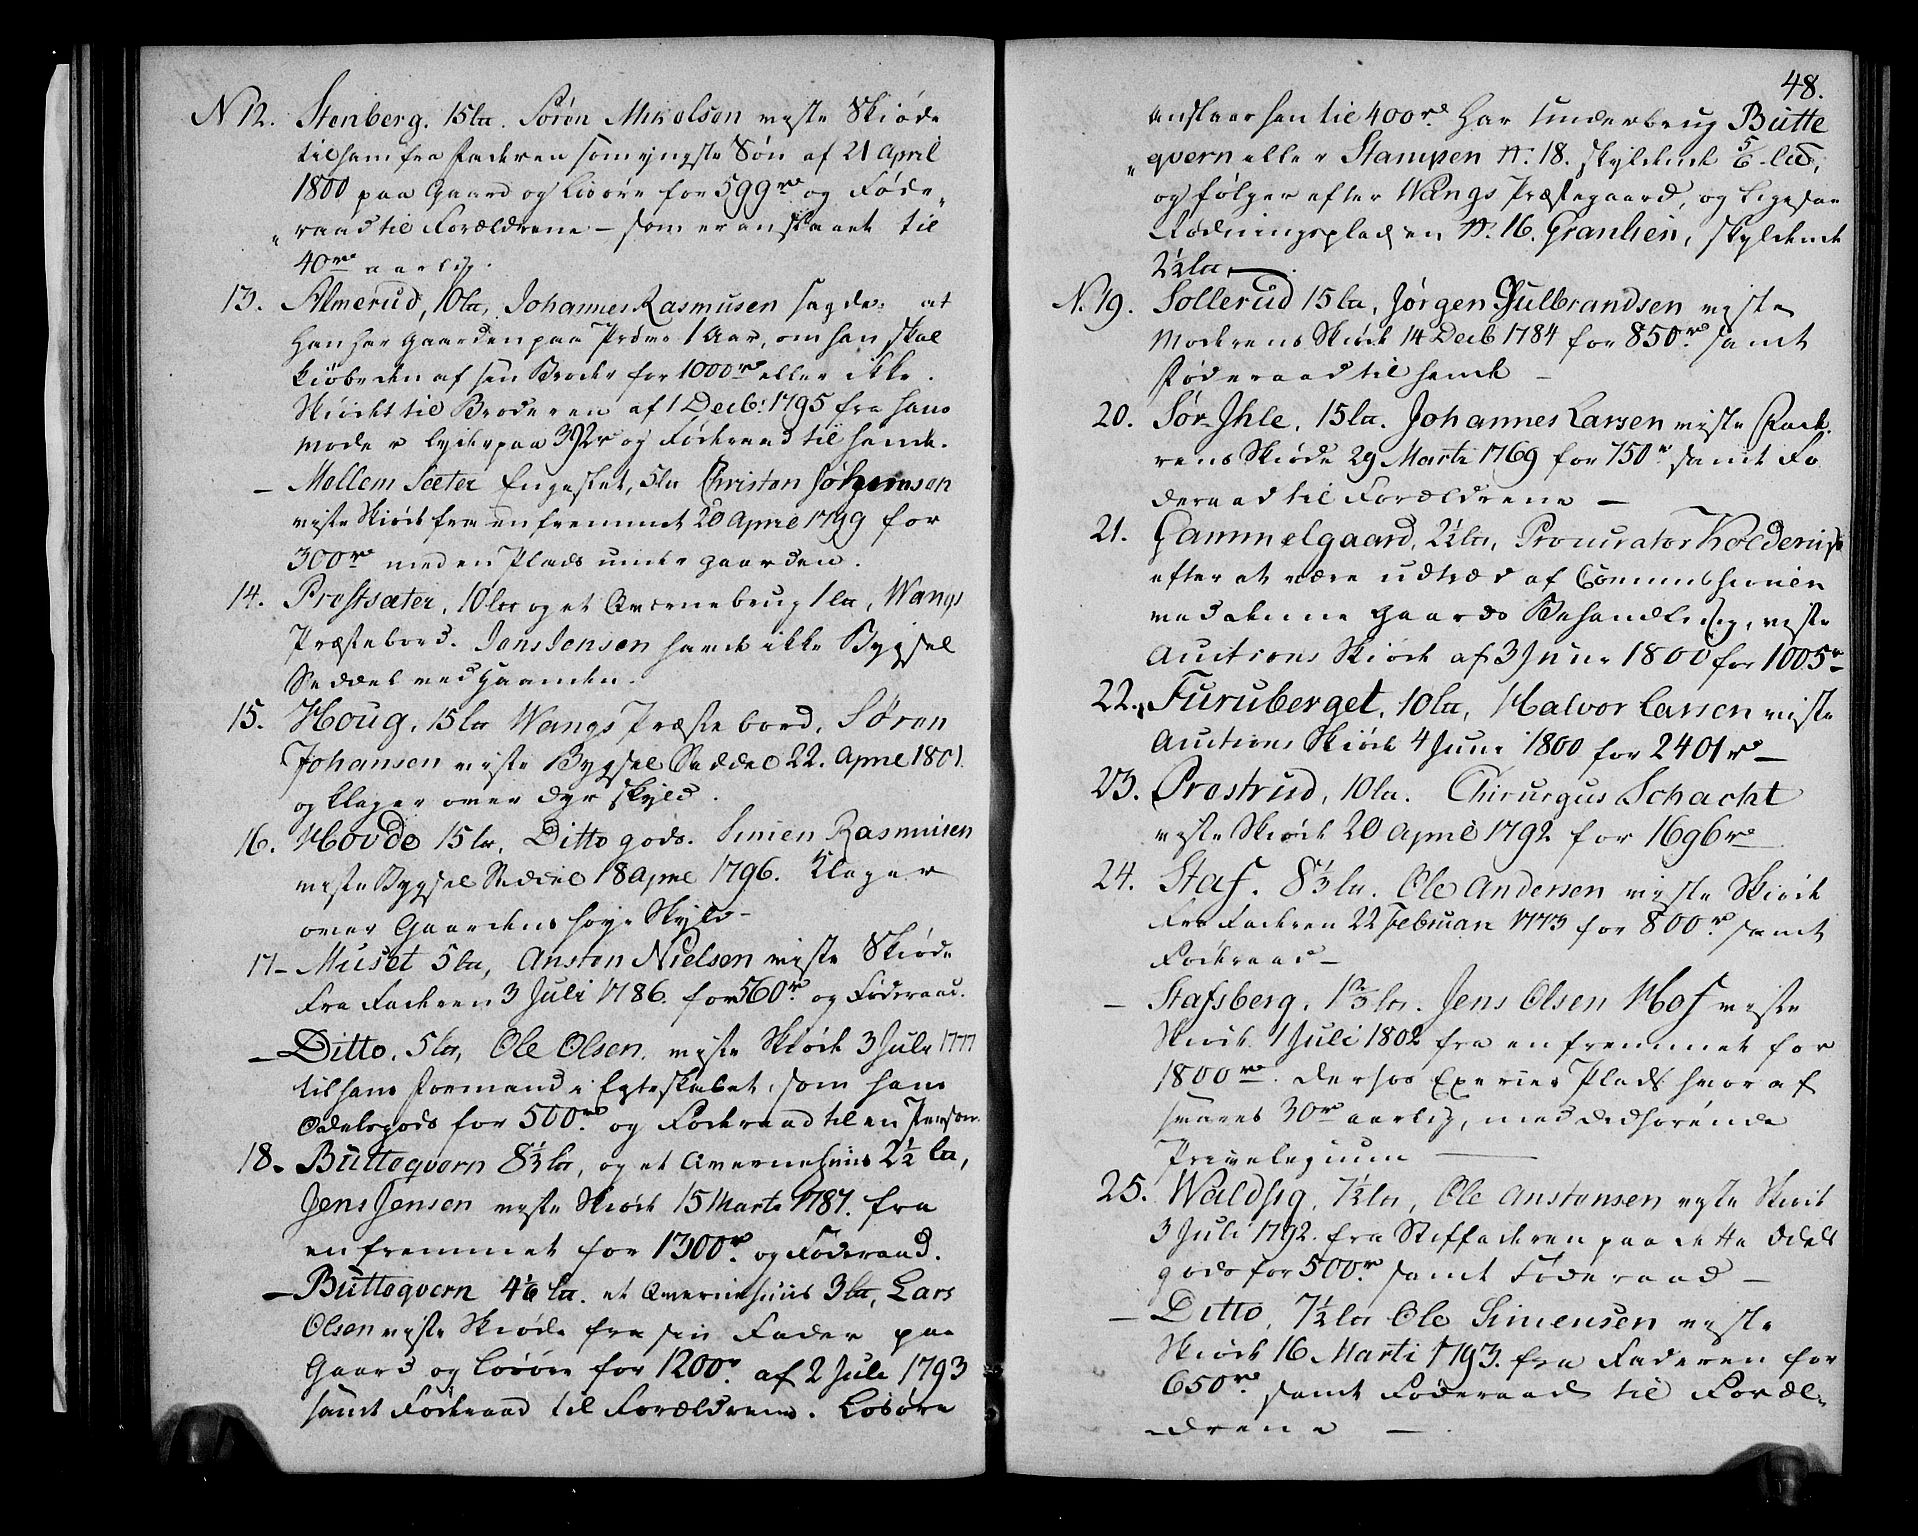 N 12. Stenberg. 15 lb. Søren Mikelsen viste Skiøde
til ham fra Faderen som yngste Søn af 21 April
1800 paa Gaard og Løsøre for 599 rd og Føde„
„raad til Forældrene – som er anslaaet til
40 rd aarlig.
13. Almerud, 10 lb, Johannes Rasmusen sagde at
han har Gaarden paa Prøve 1 Aar, om han skal
kiøbe den af sin Broder for 1000 rd eller ikke.
Skiødet til Broderen af 1 Decb: 1795 fra hans
Moder lyder paa 392 r og Føderaad til hende.
– Mellem Sæter Engeslet, 5 lb Christen Johansen
viste Skiøde fra en fremmet 20 April 1799 for
300 rd med en Plads under Gaarden.
14. Prestsæter, 10 lb og et Qvernebrug 1 lb, Wangs
Præstebord. Jens Jensen havde ikke Bygsel
Seddel ved Haanden.
15. Houg, 15 lb Wangs Præstebord, Søren
Johansen viste Bygsel Seddel 22. April 1801.
og klager over dyr Skyld.
16. Hovde 15 lb, Ditto gods. Simen Rasmusen
viste Bygsel Seddel 18 April 1796. Klager
over Gaardens høye Skyld –
17 – Muset 5 lb, Ansten Nielsen viste Skiøde
fra Faderen 3 Juli 1786. for 560 r. og Føderaad.
– Ditto, 5 lb, Ole Olsen. viste Skiøde 3 Juli 1777
til hans Formand i Egteskabet, som hans
Odelsgods for 500 rd og Føderaad til en Person.
18. Butteqvern 8 1/3 lb, og et Qvernehuus 2 1/2 lb,
Jens Jensen viste Skiøde 15 Marti 1787. fra
en fremmet for 1300 r. og Føderaad.
– Butteqvern 4 1/6 lb. et Qvernehuus 3 lb, Lars
Olsen viste Skiøde fra sin Fader paa
Gaard og Løsøre for 1200 r. af 2 Juli 1793
samt Føderaad til Forældrene. Løsøre
48.
anslaar han til 400 rd. Har Underbrug Butte
„qvern eller Stampen N. 18. skyldende 5/6 lb,
og følger efter Wangs Præstegaard, og ligesaa
Rødningspladsen N. 16. Granlien, skyldende
2 1/2 lb.
N. 19. Sollerud 15 lb, Jørgen Gulbrandsen viste
Moderens Skiøde 14 Decb 1784 for 850 rd samt
Føderaad til hende –
20. Sør-Ihle, 15 lb. Johannes Larsen viste Fade
rens Skiøde 29 Marti 1769 for 750 r. samt Fø
deraad til Forældrene –
21. Gammelgaard, 2 1/2 lb, Procurator
efter at være udtræd af Commissionen
ved denne Gaards Behandling, viste
Auctions Skiøde af 3 Juni 1800 for 1005 r –
22. Furuberget, 10 lb, Halvor Larsen viste
Auctions Skiøde 4 Juni 1800 for 2401 rd –
23. Prestrud, 10 lb. Chirurgus Schacht
viste Skiøde 20 April 1792 for 1696 rd
24. Staf. 8 1/3 lb. Ole Andersen viste Skiøde
fra Faderen 22 Februari 1773 for 800 rd samt
Føderaad –
– Stafsberg, 1 2/3 lb. Jens Olsen Hof viste
Skiøde 1 Juli 1802 fra en fremmet for
1800 rd. Derhos Exerceer Plads hvoraf
svares 30 rd aarlig, med tilhørende
Privelegium –
25. Waldsig, 7 1/2 lb, Ole Anstensen viste Skiøde
3 Juli 1792. fra Stiffaderen paa dette Odels
gods for 500 rd samt Føderaad –
– Ditto, 7 1/2 lb Ole Simensen viste
Skiøde 16 Marti 1793. fra Faderen for
650 rd. samt Føderaad til Foræl„
drene –